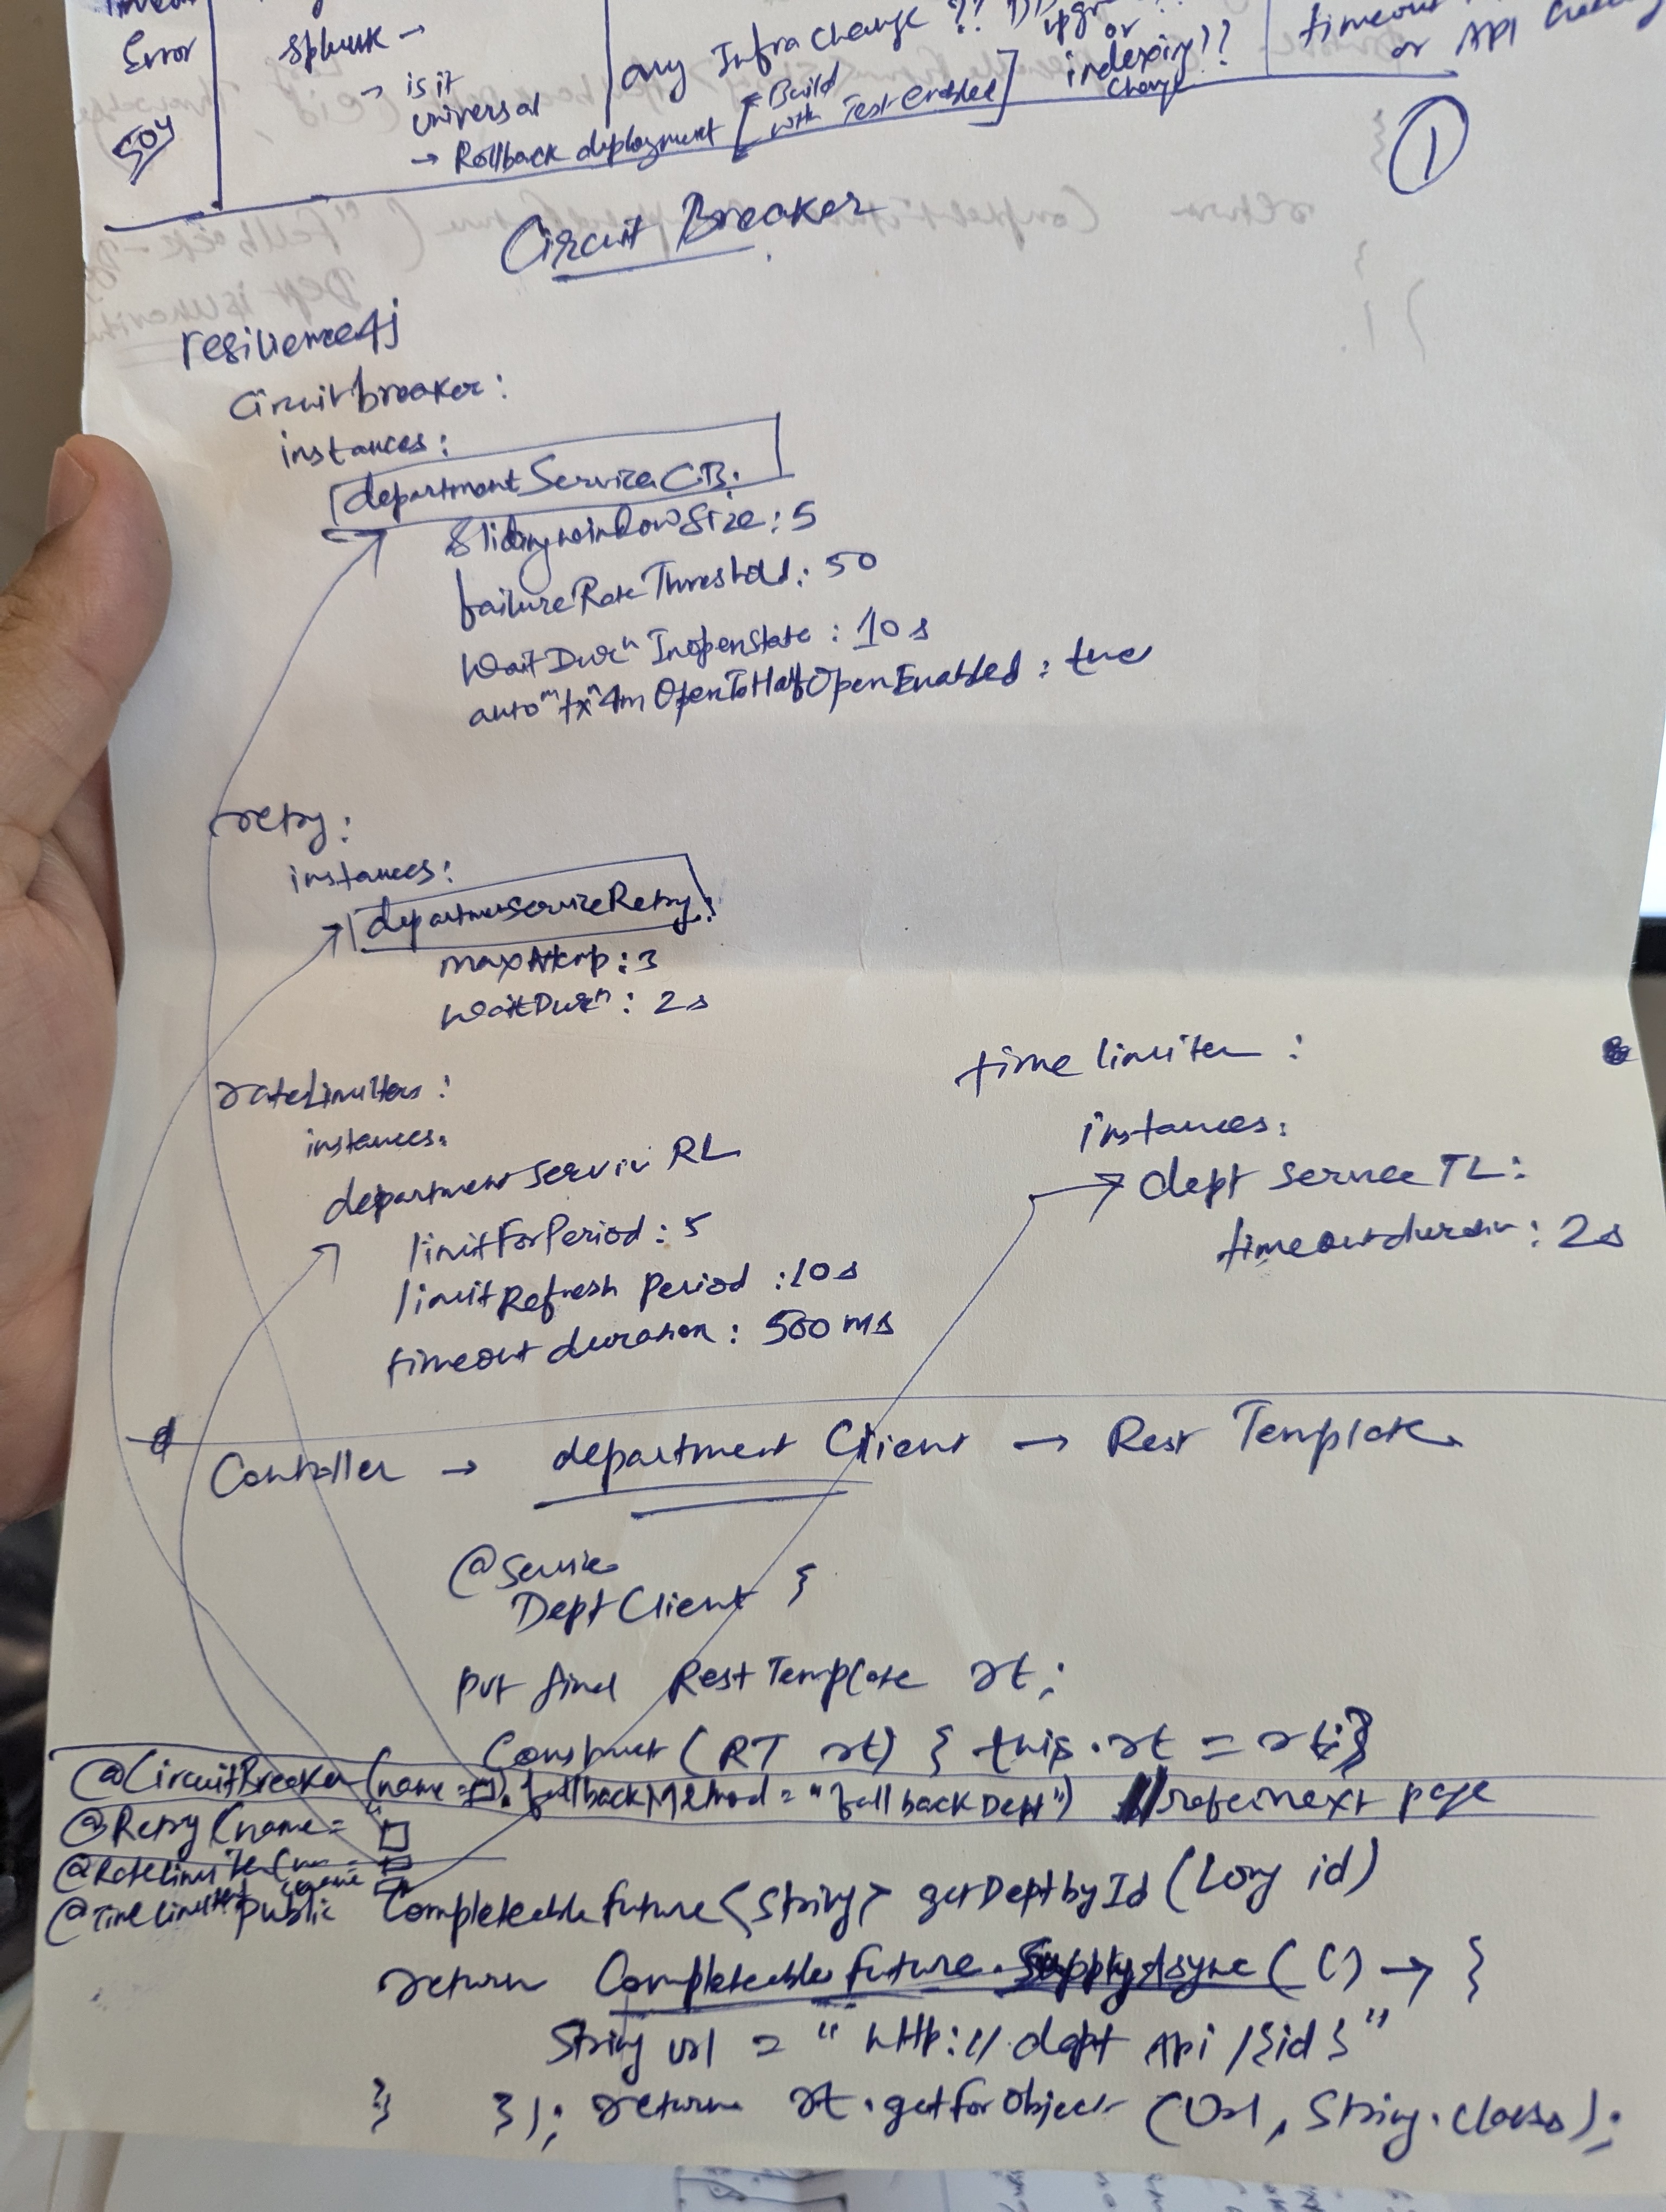 Error
504
Splunk →
→ is it
universal
→ Rollback deployment [ Build with Test enabled ]
any Infra Change ??
or
indexing??
change
timeout
or API
①
Circuit Breaker
resilience4j
Circuitbreaker:
instances:
departmentServiceCB.
SlidingwindowSize: 5
failureRateThreshold: 50
WaitDurⁿ InopenState : 10s
autoᵐtxⁿ4m OpenToHalfOpenEnabled : true
retry:
instances:
departmeserviceRetry:
maxAttemp: 3
WaitDurⁿ: 2s
rateLimiters:
instances:
department Service RL
limitForPeriod: 5
limitRefresh Period : 10s
timeout duration : 500 ms
time limiter :
instances:
dept Service TL:
timeoutduration: 2s
Controller → department Client → Rest Template
@Service
DeptClient {
pvt final RestTemplate rt;
Construct (RT rt) { this.rt = rt;}
@CircuitBreaker (name = □, fallbackMethod = "fallbackDept") // refer next page
@Retry (name = □
@RateLimiter (name = □
@TimeLimiter (name □
public CompleteableFuture<String> getDeptbyId (Long id)
return Completeable future. SupplyAsync ( () → {
String url = " http:// dept Api /{id} "
} }); return rt.getForObject (Url, String.class);